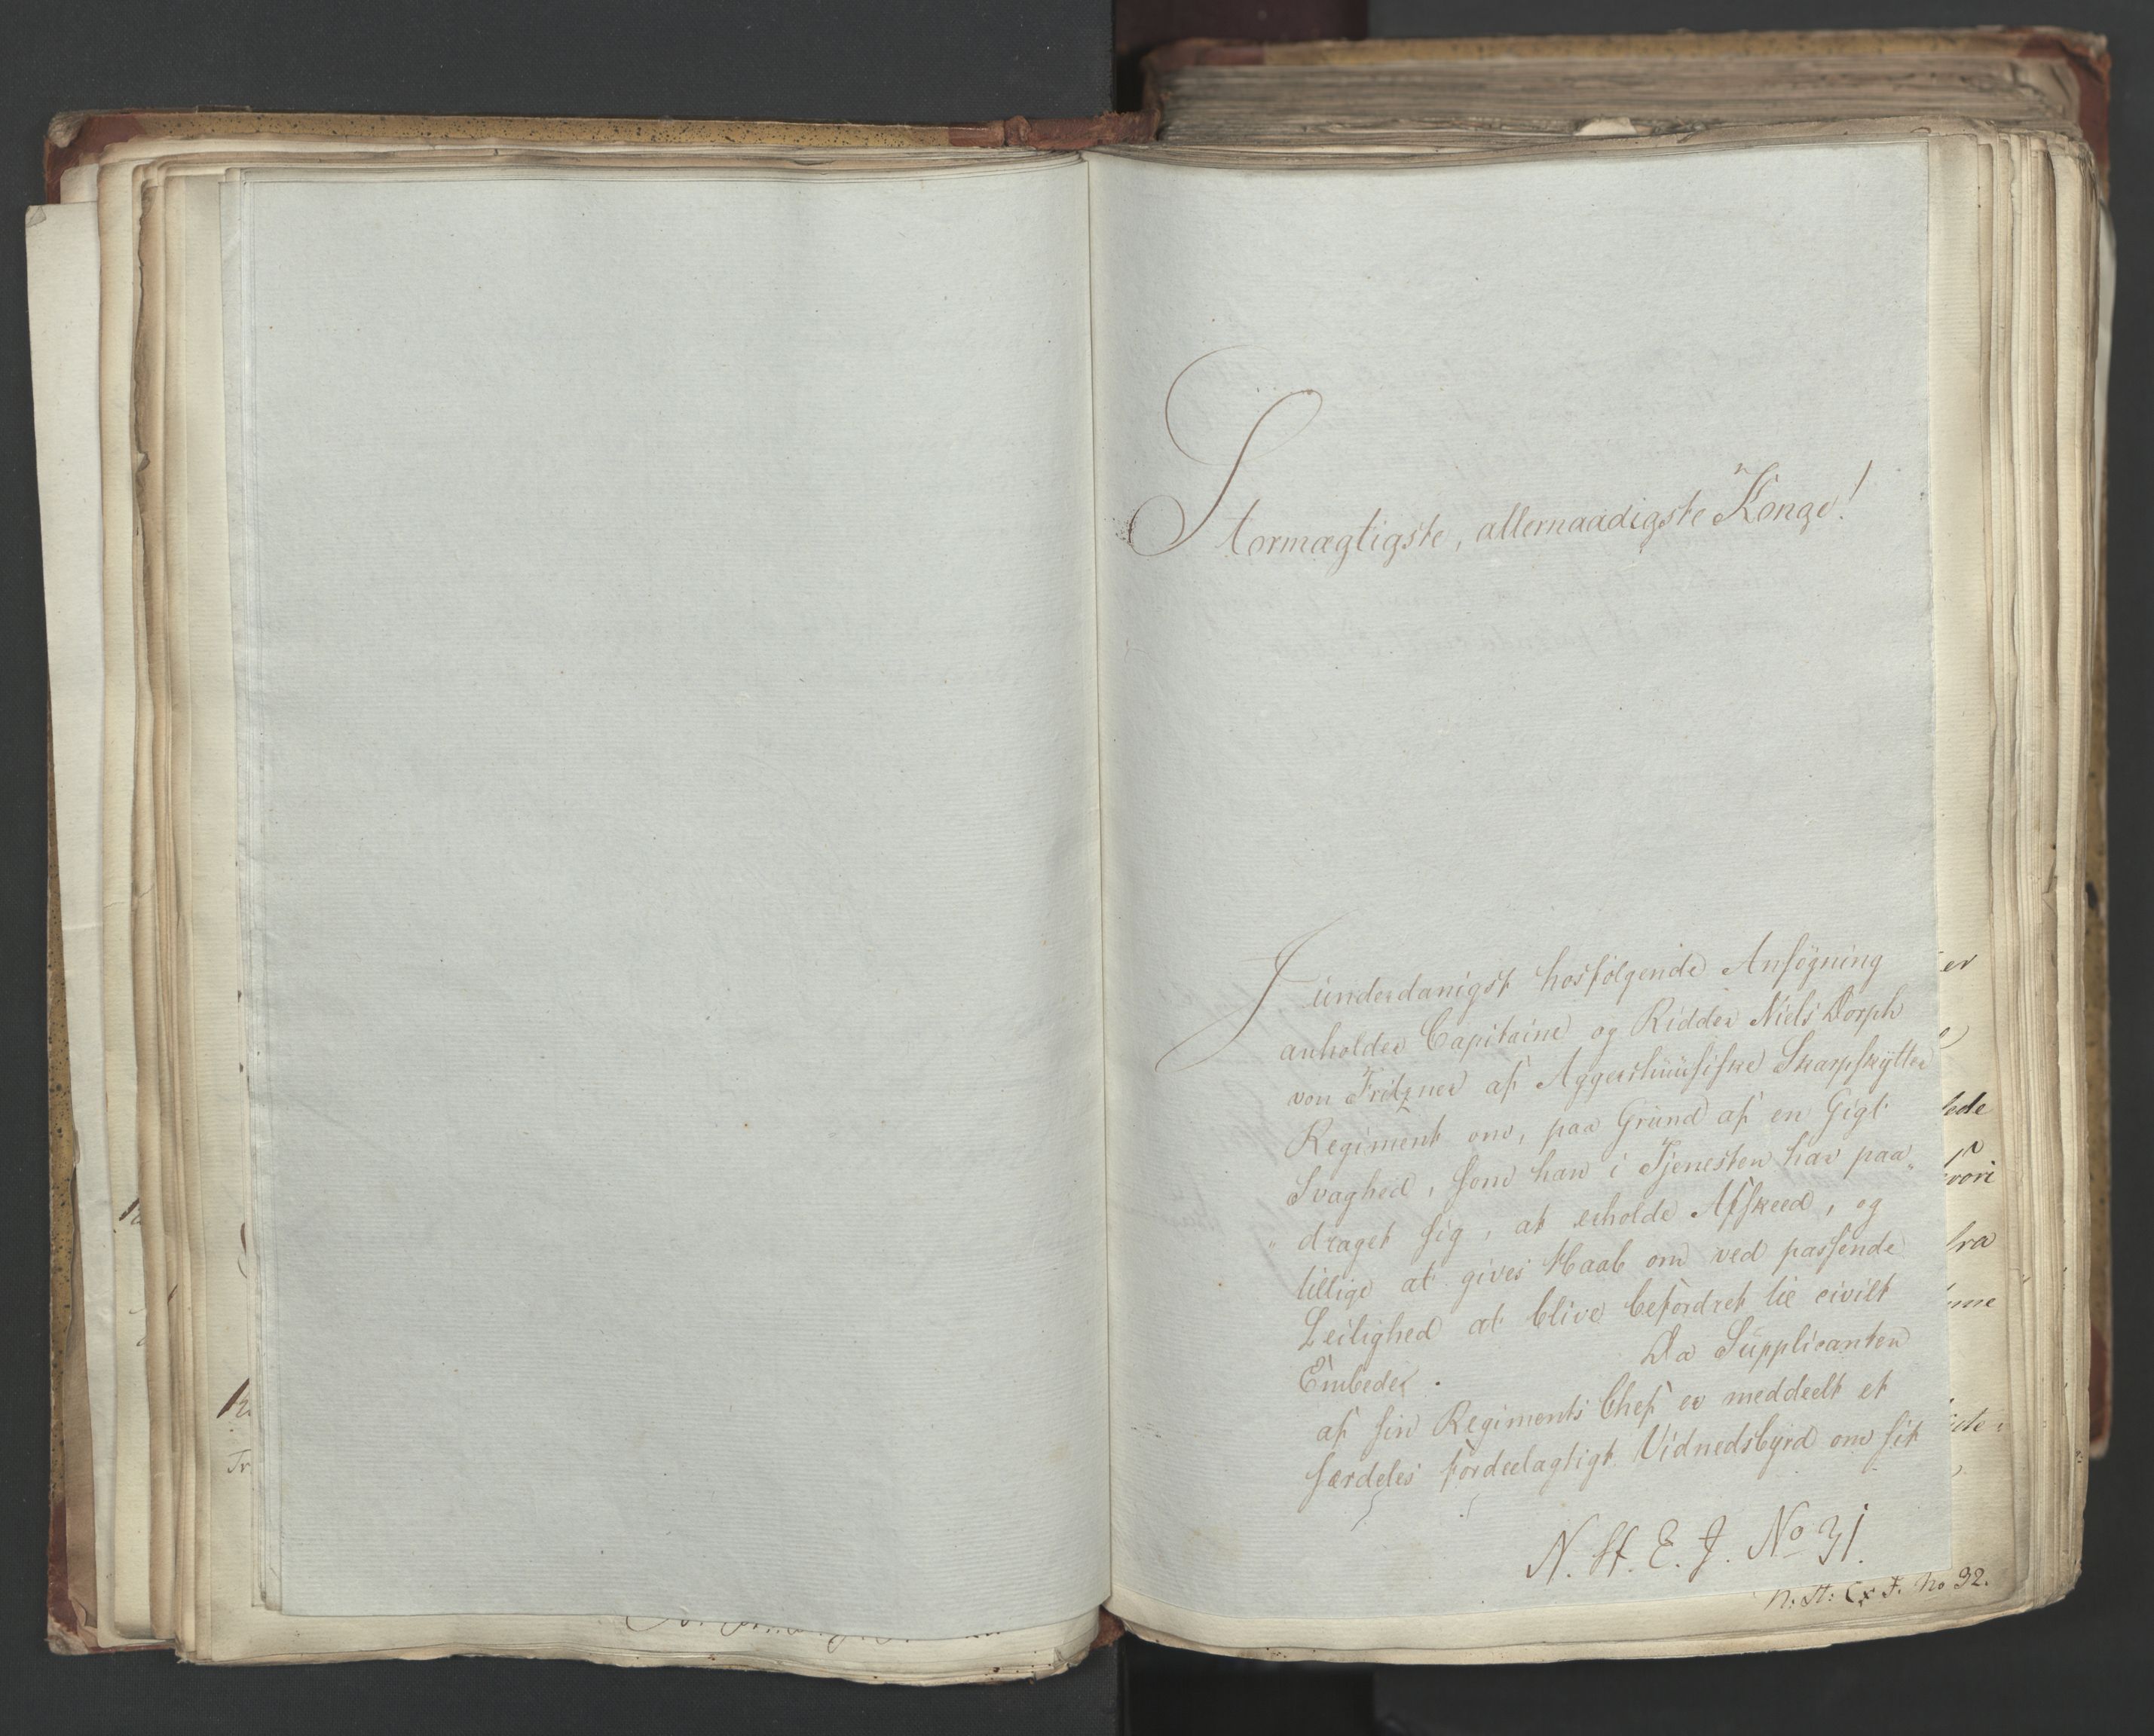 Stormægtigste, allernaadigste Konge!
I underdanigst hosfølgende Ansøgning
anholder Capitaine og Ridder Niels Dorph
von Fritzner af Aggershuusiske Skarpskytter
Regiment om, paa Grund af en Gigt
Svaghed, som han i Tjenesten har paa„
„draget sig, at erholde Afskeed, og
tillige at gives Haab om ved passende
Leilighed at blive befordret til civilt
Embede.
Da Supplicanten
af sin Regiments Chef er meddeelt et
særdeles fordeelagtigt Vidnedsbyrd om sit
N. St. E. J. No 31.
N. St: Ex J. No 32.